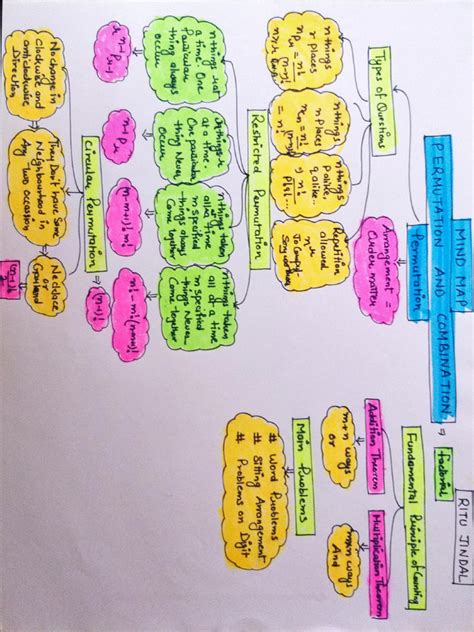 MIND MAP
RITU JINDAL
PERMUTATION AND COMBINATION
⇒ factorial
Permutation
Arrangement =
Order matter
Types of Questions
n things
r places
n places
n things
P alike,
q alike..
Repetition
allowed
Restricted Permutation
n things r at
a time. One
Particular
thing always
occur
at a time.
One particular
thing Never
occur
n things taken
all at a time
m specified
things always
Come together
n things taken
all at a time
m specified
things Never
Come together
n-1Pr
m!(n-m+1)!
n! - m!(n-m+1)!
Circular Permutation ⇒ (n-1)!
No change in
Clockwise and
anticlockwise
Direction
They Don't have Same
Neighbourhood in
Any two occasion
Necklace
or
Garland
Fundamental Principle of Counting
Addition Theorem
Multiplication Theorem
m+n ways
or
m×n ways
And
Main Problems
# Word Problems
# Sitting Arrangement
# Problems on Digit